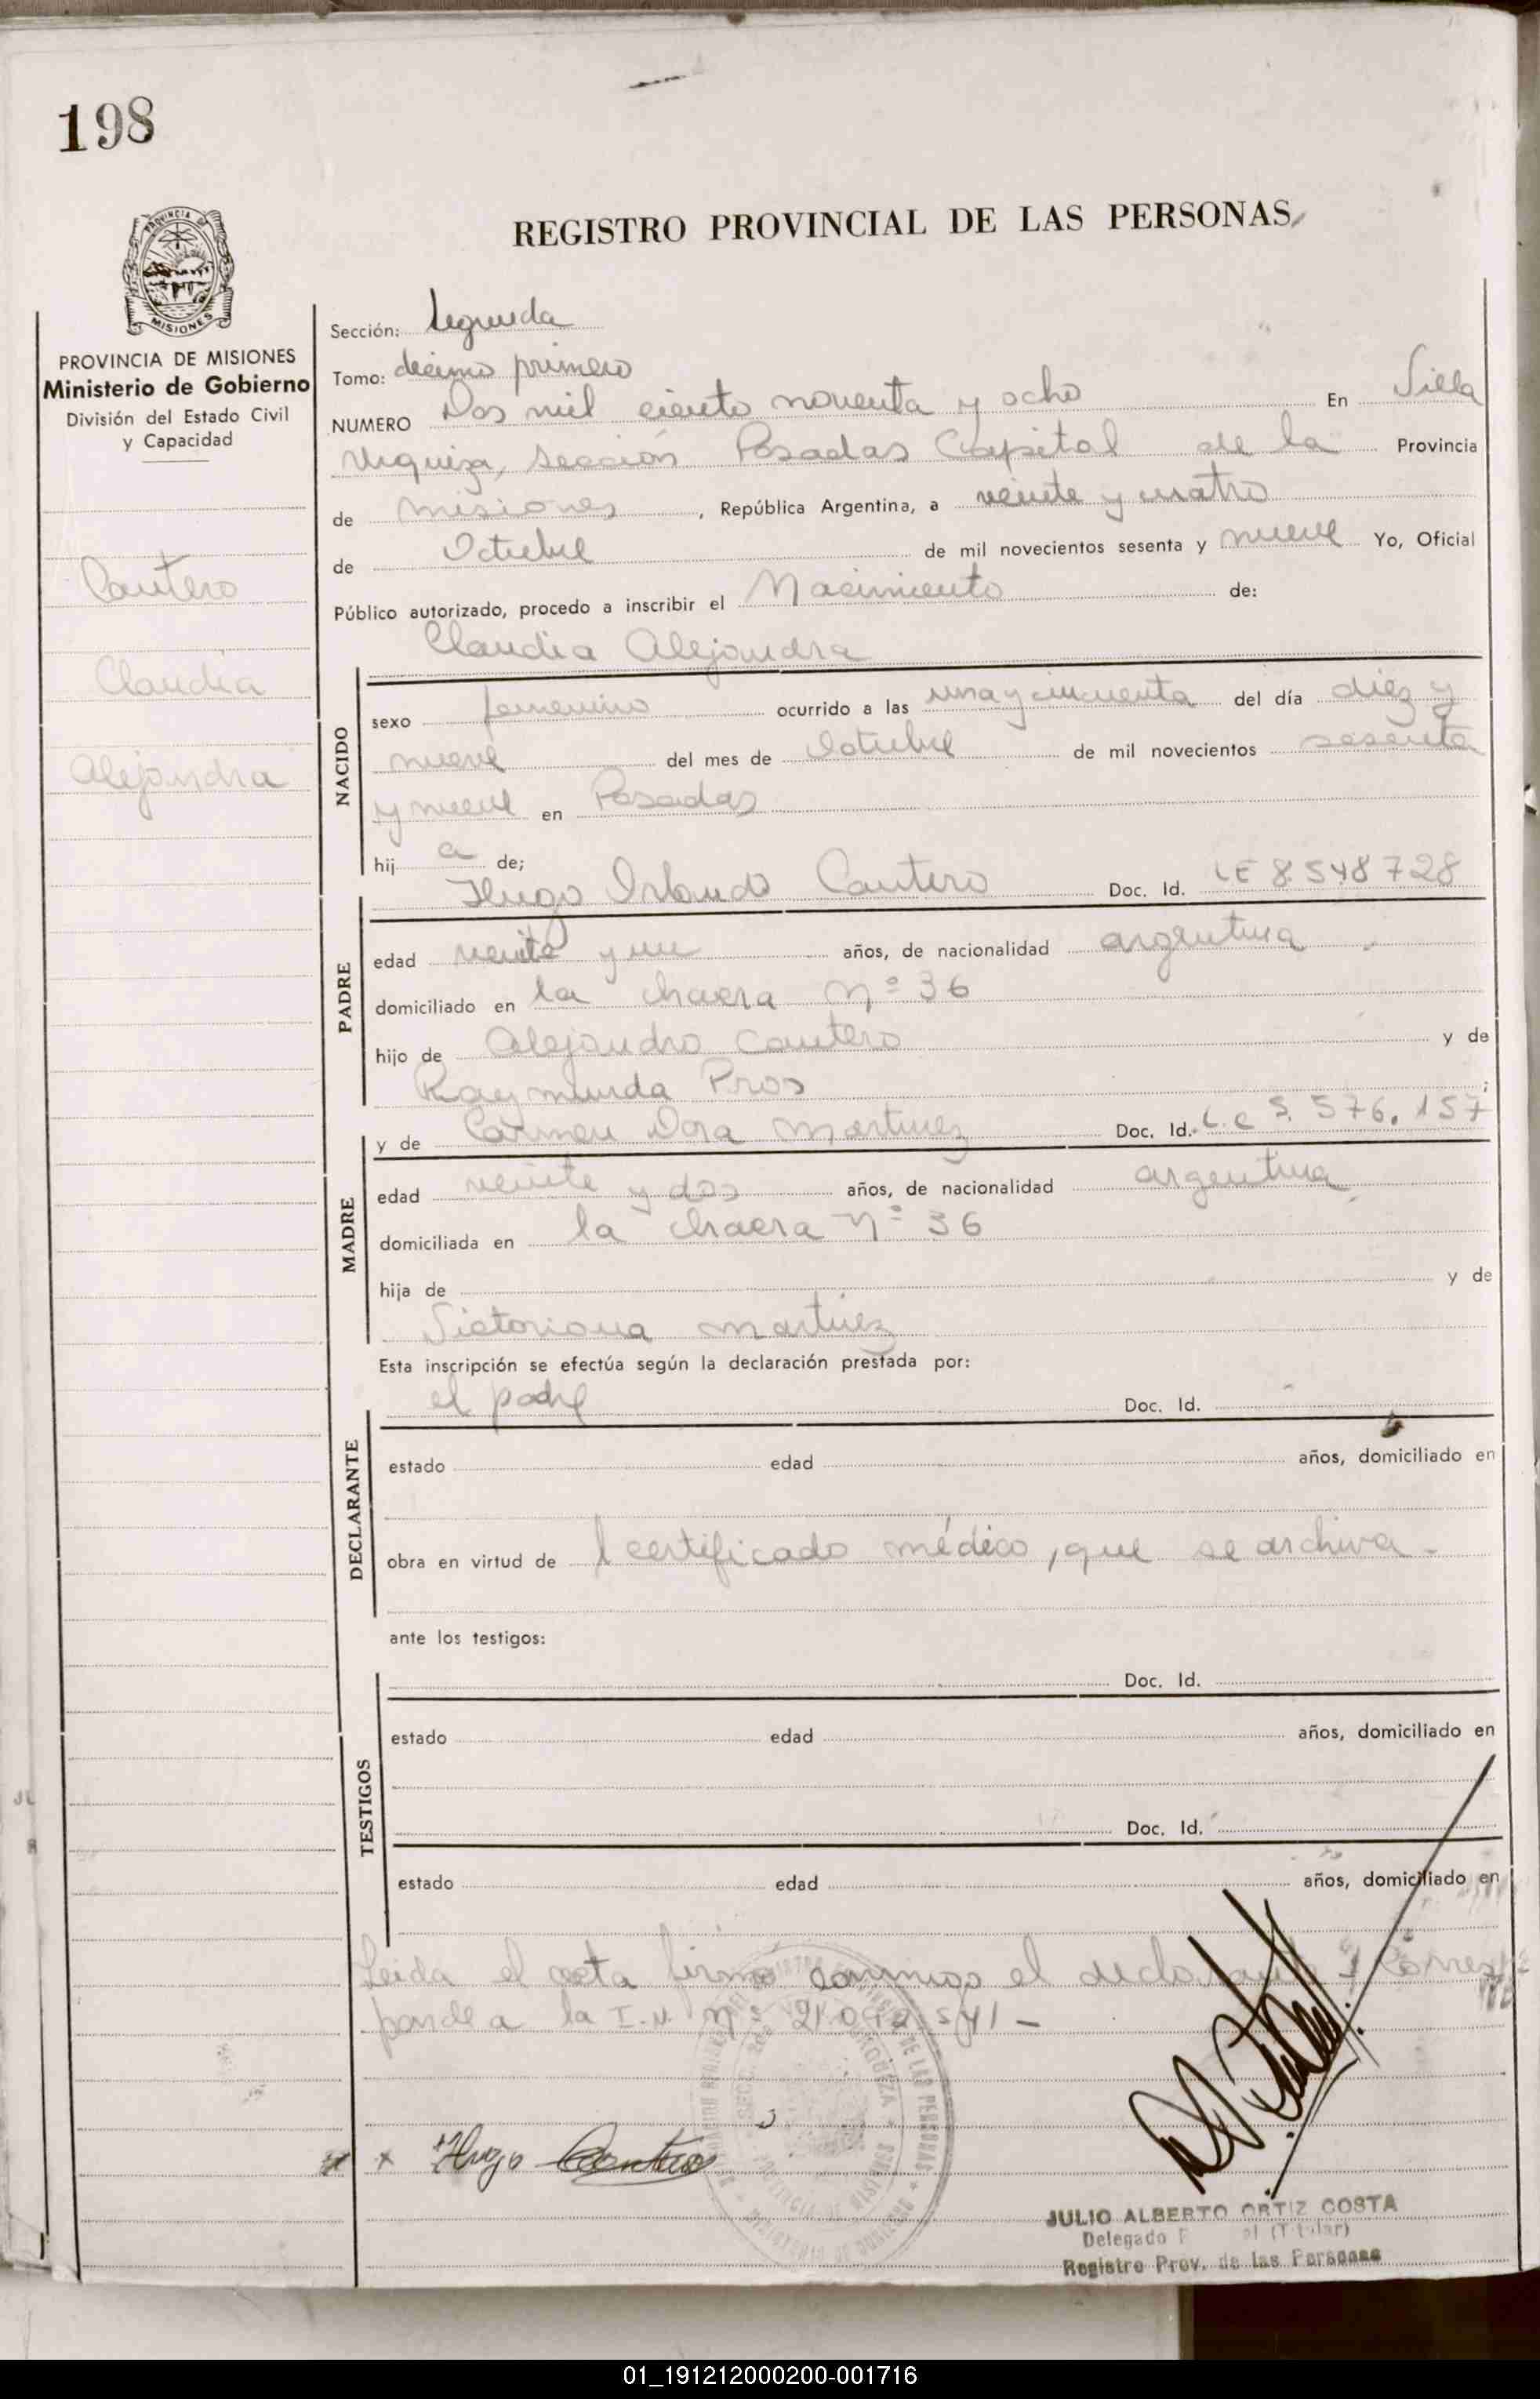 198
REGISTRO PROVINCIAL DE LAS PERSONAS
PROVINCIA DE
MISIONES
PROVINCIA DE MISIONES
Ministerio de Gobierno
División del Estado Civil
y Capacidad
Cantero
Claudia
Alejandra
Sección: Segunda
Tomo: décimo primero
NUMERO Dos mil ciento noventa y ocho En Villa
Urquiza, sección Posadas Capital de la Provincia
de misiones, República Argentina, a veinte y cuatro
de Octubre de mil novecientos sesenta y nueve Yo, Oficial
Público autorizado, procedo a inscribir el Nacimiento de:
Claudia Alejandra
NACIDO
sexo femenino ocurrido a las una y cincuenta del día diez y
nueve del mes de Octubre de mil novecientos sesenta
y nueve en Posadas
hij a de;
Hugo Orlando Cantero Doc. Id. LE 8.548728
PADRE
edad veinte y un años, de nacionalidad argentina
domiciliado en la chacra Nº 36
hijo de Alejandro Cantero y de
Raymunda Pros;
y de Carmen Dora Martinez Doc. Id. L.C 5.576.157
MADRE
edad veinte y dos años, de nacionalidad argentina
domiciliada en la chacra Nº 36
hija de y de
Victoriana Martinez
Esta inscripción se efectúa según la declaración prestada por:
el padre Doc. Id.
DECLARANTE
estado edad años, domiciliado en
obra en virtud de l certificado médico, que se archiva.-
ante los testigos:
Doc. Id.
TESTIGOS
estado edad años, domiciliado en
Doc. Id.
estado edad años, domiciliado en
Leida el acta firmó conmigo el declarante y Corres
ponde a la I.N. Nº 21.042.541-
x Hugo Cantero
JULIO ALBERTO ORTIZ COSTA
Delegado
Registro Prov. de las Personas
01_191212000200-001716